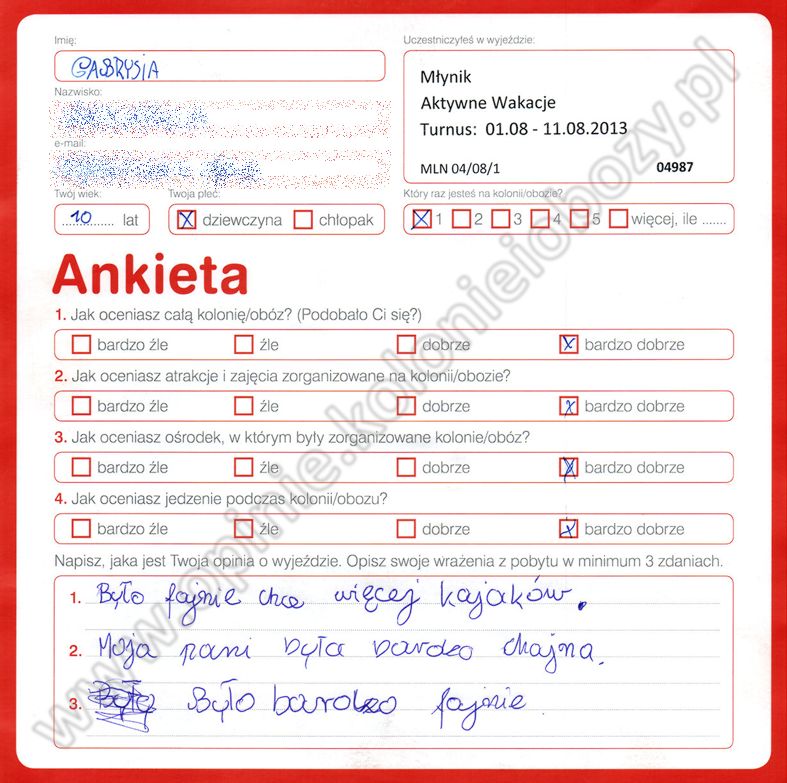 Imię:
GABRYSIA
Nazwisko:
e-mail:
Twój wiek:
10 lat
Twoja płeć:
dziewczyna chłopak
Uczestniczyłeś w wyjeździe:
Młynik
Aktywne Wakacje
Turnus: 01.08 - 11.08.2013
MLN 04/08/1 04987
Który raz jesteś na kolonii/obozie?
1 2 3 4 5 więcej, ile .......
Ankieta
1. Jak oceniasz całą kolonię/obóz? (Podobało Ci się?)
bardzo źle źle dobrze bardzo dobrze
2. Jak oceniasz atrakcje i zajęcia zorganizowane na kolonii/obozie?
bardzo źle źle dobrze bardzo dobrze
3. Jak oceniasz ośrodek, w którym były zorganizowane kolonie/obóz?
bardzo źle źle dobrze bardzo dobrze
4. Jak oceniasz jedzenie podczas kolonii/obozu?
bardzo źle źle dobrze bardzo dobrze
Napisz, jaka jest Twoja opinia o wyjeździe. Opisz swoje wrażenia z pobytu w minimum 3 zdaniach.
1. Było fajnie chce więcej kajaków.
2. Moja pani była bardzo chajna.
3. Było bardzo fajnie
www.opinie.kolonieiobozy.pl